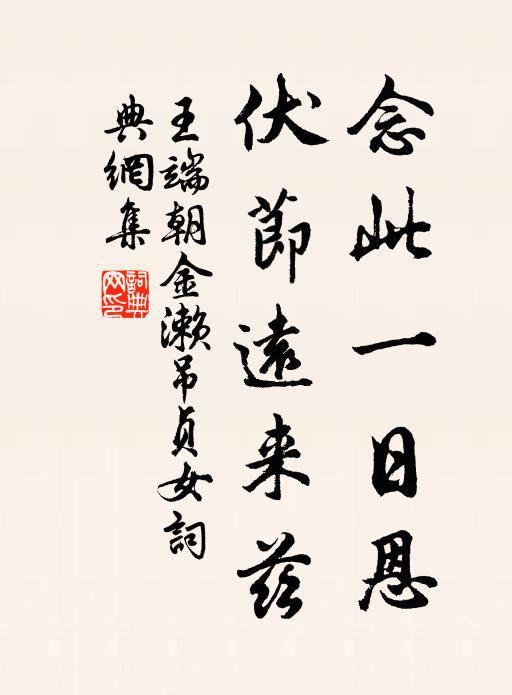 念此一日恩
伏節遠来茲
王端朝金濑吊貞女詞
典網集
詞典网印